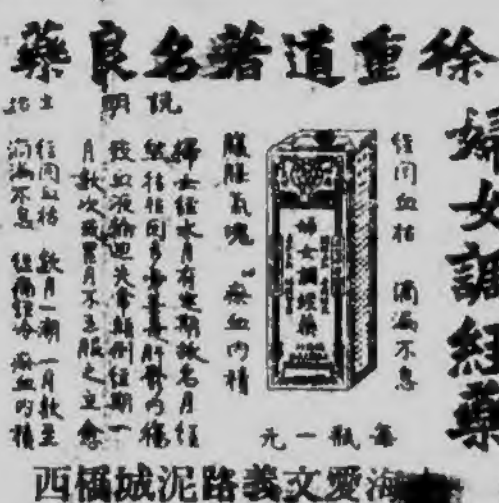 徐重道著名良藥
婦女調經藥
經閉血枯 滴漏不息
婦女調經藥
每瓶一元
腹脹氣塊 瘀血內積
說明
婦女經水月有定期故名月經
致血液輸迴失常經期一
月數次或累月不至服之立愈
主治
經閉血枯 數月一潮 一月數至
滴漏不息 經痛經冷 瘀血內積
海愛文義路泥城橋西